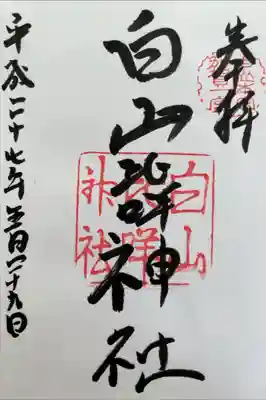 奉拝
白山比咩神社
白山
比咩
神社
平成二十七年三月二十九日